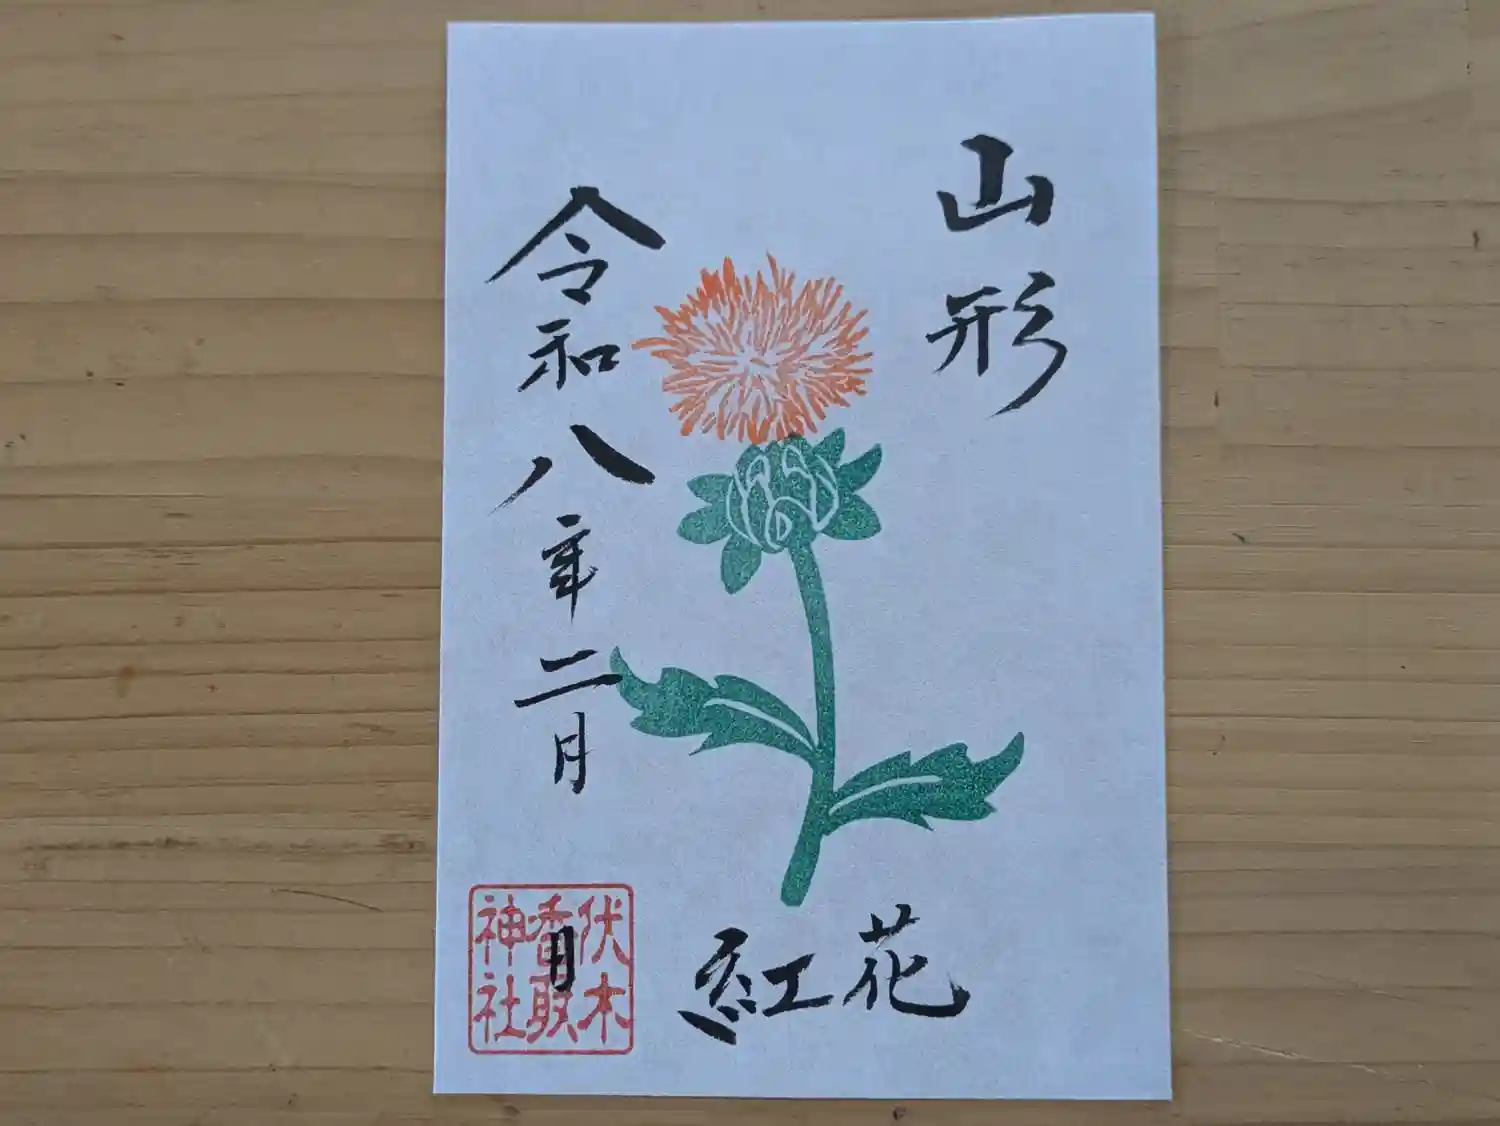 山形
令和八年二月
日
紅花
伏木
香取
神社